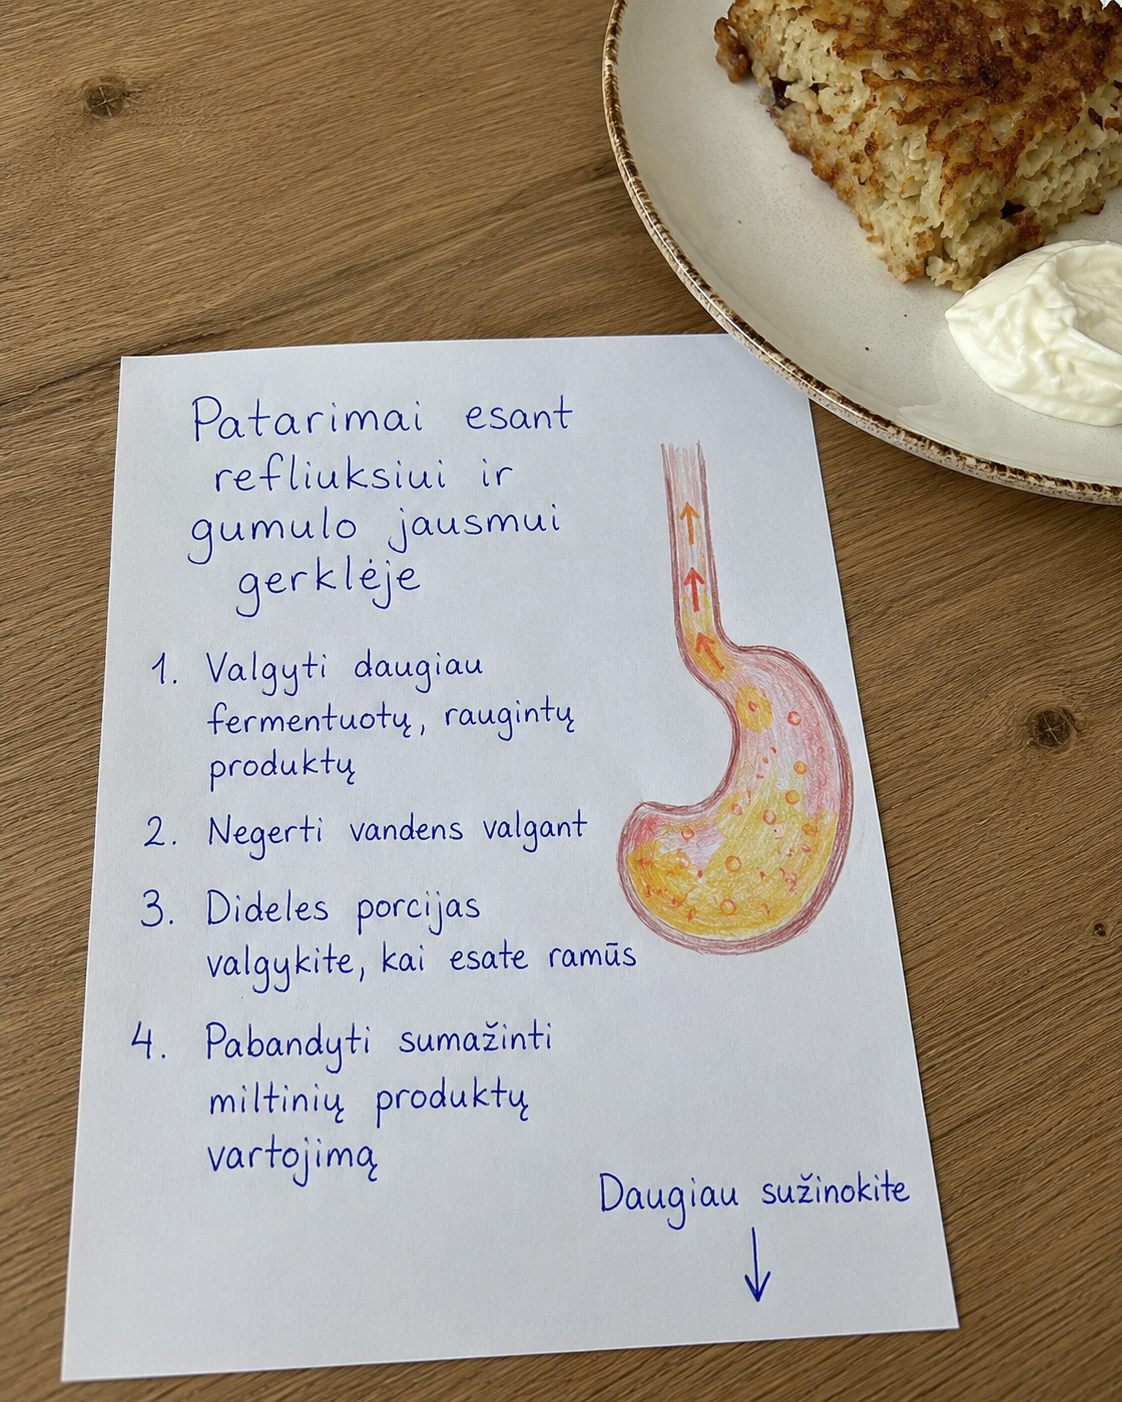 Patarimai esant
refliuksiui ir
gumulo jausmui
gerklėje
1. Valgyti daugiau
fermentuotų, raugintų
produktų
2. Negerti vandens valgant
3. Dideles porcijas
valgykite, kai esate ramūs
4. Pabandyti sumažinti
miltinių produktų
vartojimą
Daugiau sužinokite